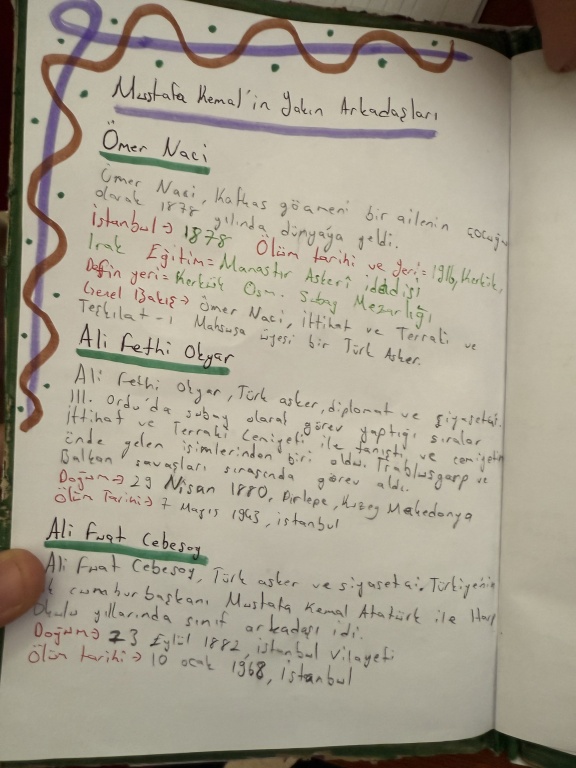 Mustafa Kemal'in Yakın Arkadaşları
Ömer Naci
Ömer Naci, Kafkas göçmeni bir ailenin çocuğu
olarak 1878 yılında dünyaya geldi.
İstanbul → 1878 Ölüm tarihi ve yeri = 1916, Kerkük,
Irak Eğitim = Manastır Askerî idadisi
Defin yeri = Kerkük Osm. Subay Mezarlığı
Genel Bakış → Ömer Naci, İttihat ve Terraki ve
Teşkilat-ı Mahsusa üyesi bir Türk Asker.
Ali Fethi Okyar
Ali Fethi Okyar, Türk asker, diplomat ve siyasetçi.
III. Ordu'da subay olarak görev yaptığı sıralar
İttihat ve Terraki Cemiyeti ile tanıştı ve cemiyetin
önde gelen isimlerinden biri oldu. Trablusgarp ve
Balkan savaşları sırasında görev aldı.
Doğum → 29 Nisan 1880, Pirlepe, Kuzey Makedonya
Ölüm Tarihi → 7 Mayıs 1943, istanbul
Ali Fuat Cebesoy
Ali Fuat Cebesoy, Türk asker ve siyasetçi. Türkiye'nin
cumhurbaşkanı Mustafa Kemal Atatürk ile Harp
Okulu yıllarında sınıf arkadaşı idi.
Doğum → 23 Eylül 1882, istanbul vilayeti
Ölüm tarihi → 10 ocak 1968, istanbul